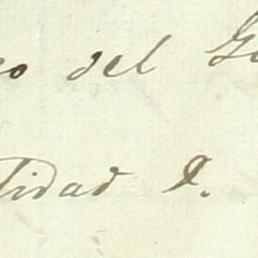 co del Go
tidad P.